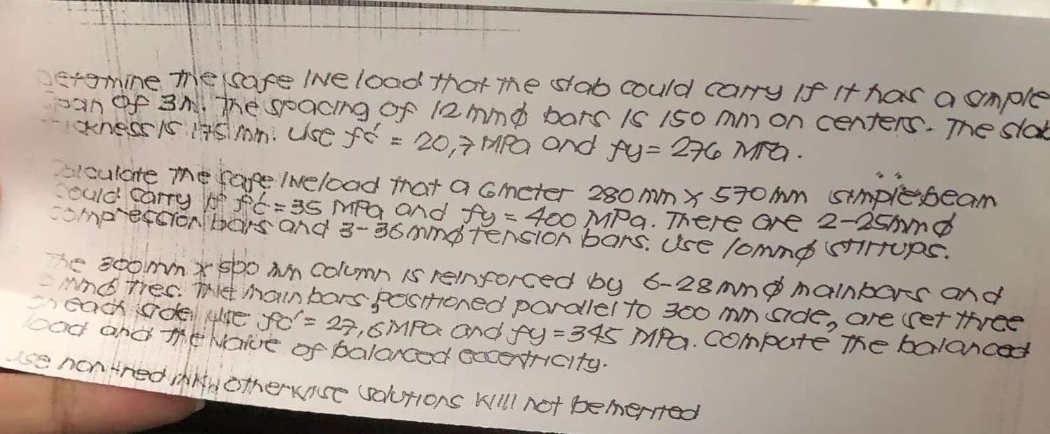 the safe live load that the slab could carry if it has a simple
of 3m. The spacing of 12mmφ bars is 150 mm on centers. The slab
is 175 mm. Use fc' = 20,7 MPa and fy = 276 MPa.
the safe live load that a 6meter 280mm x 570mm simple beam
could carry if fc' = 35 MPa and fy = 400 MPa. There are 2-25mmφ
compression bars and 3-36mmφ tension bars. Use 10mmφ stirrups.
The 300mm x 500 mm column is reinforced by 6-28mmφ mainbars and
mmφ ties. The main bars, positioned parallel to 300 mm side, are set three
on each side. Use fc' = 27,6MPa and fy = 345 MPa. Compute the balanced
load and the value of balanced eccentricity.
otherwise solutions will not be merited